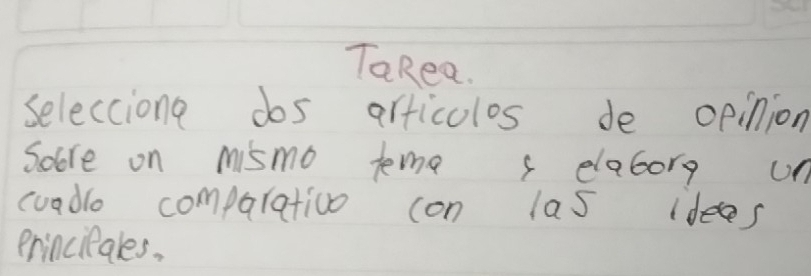 Tarea.
selecciona dos articulos de opinion
sobre un mismo tema y elabora un
cuadro comparativo con las ideas
principales.